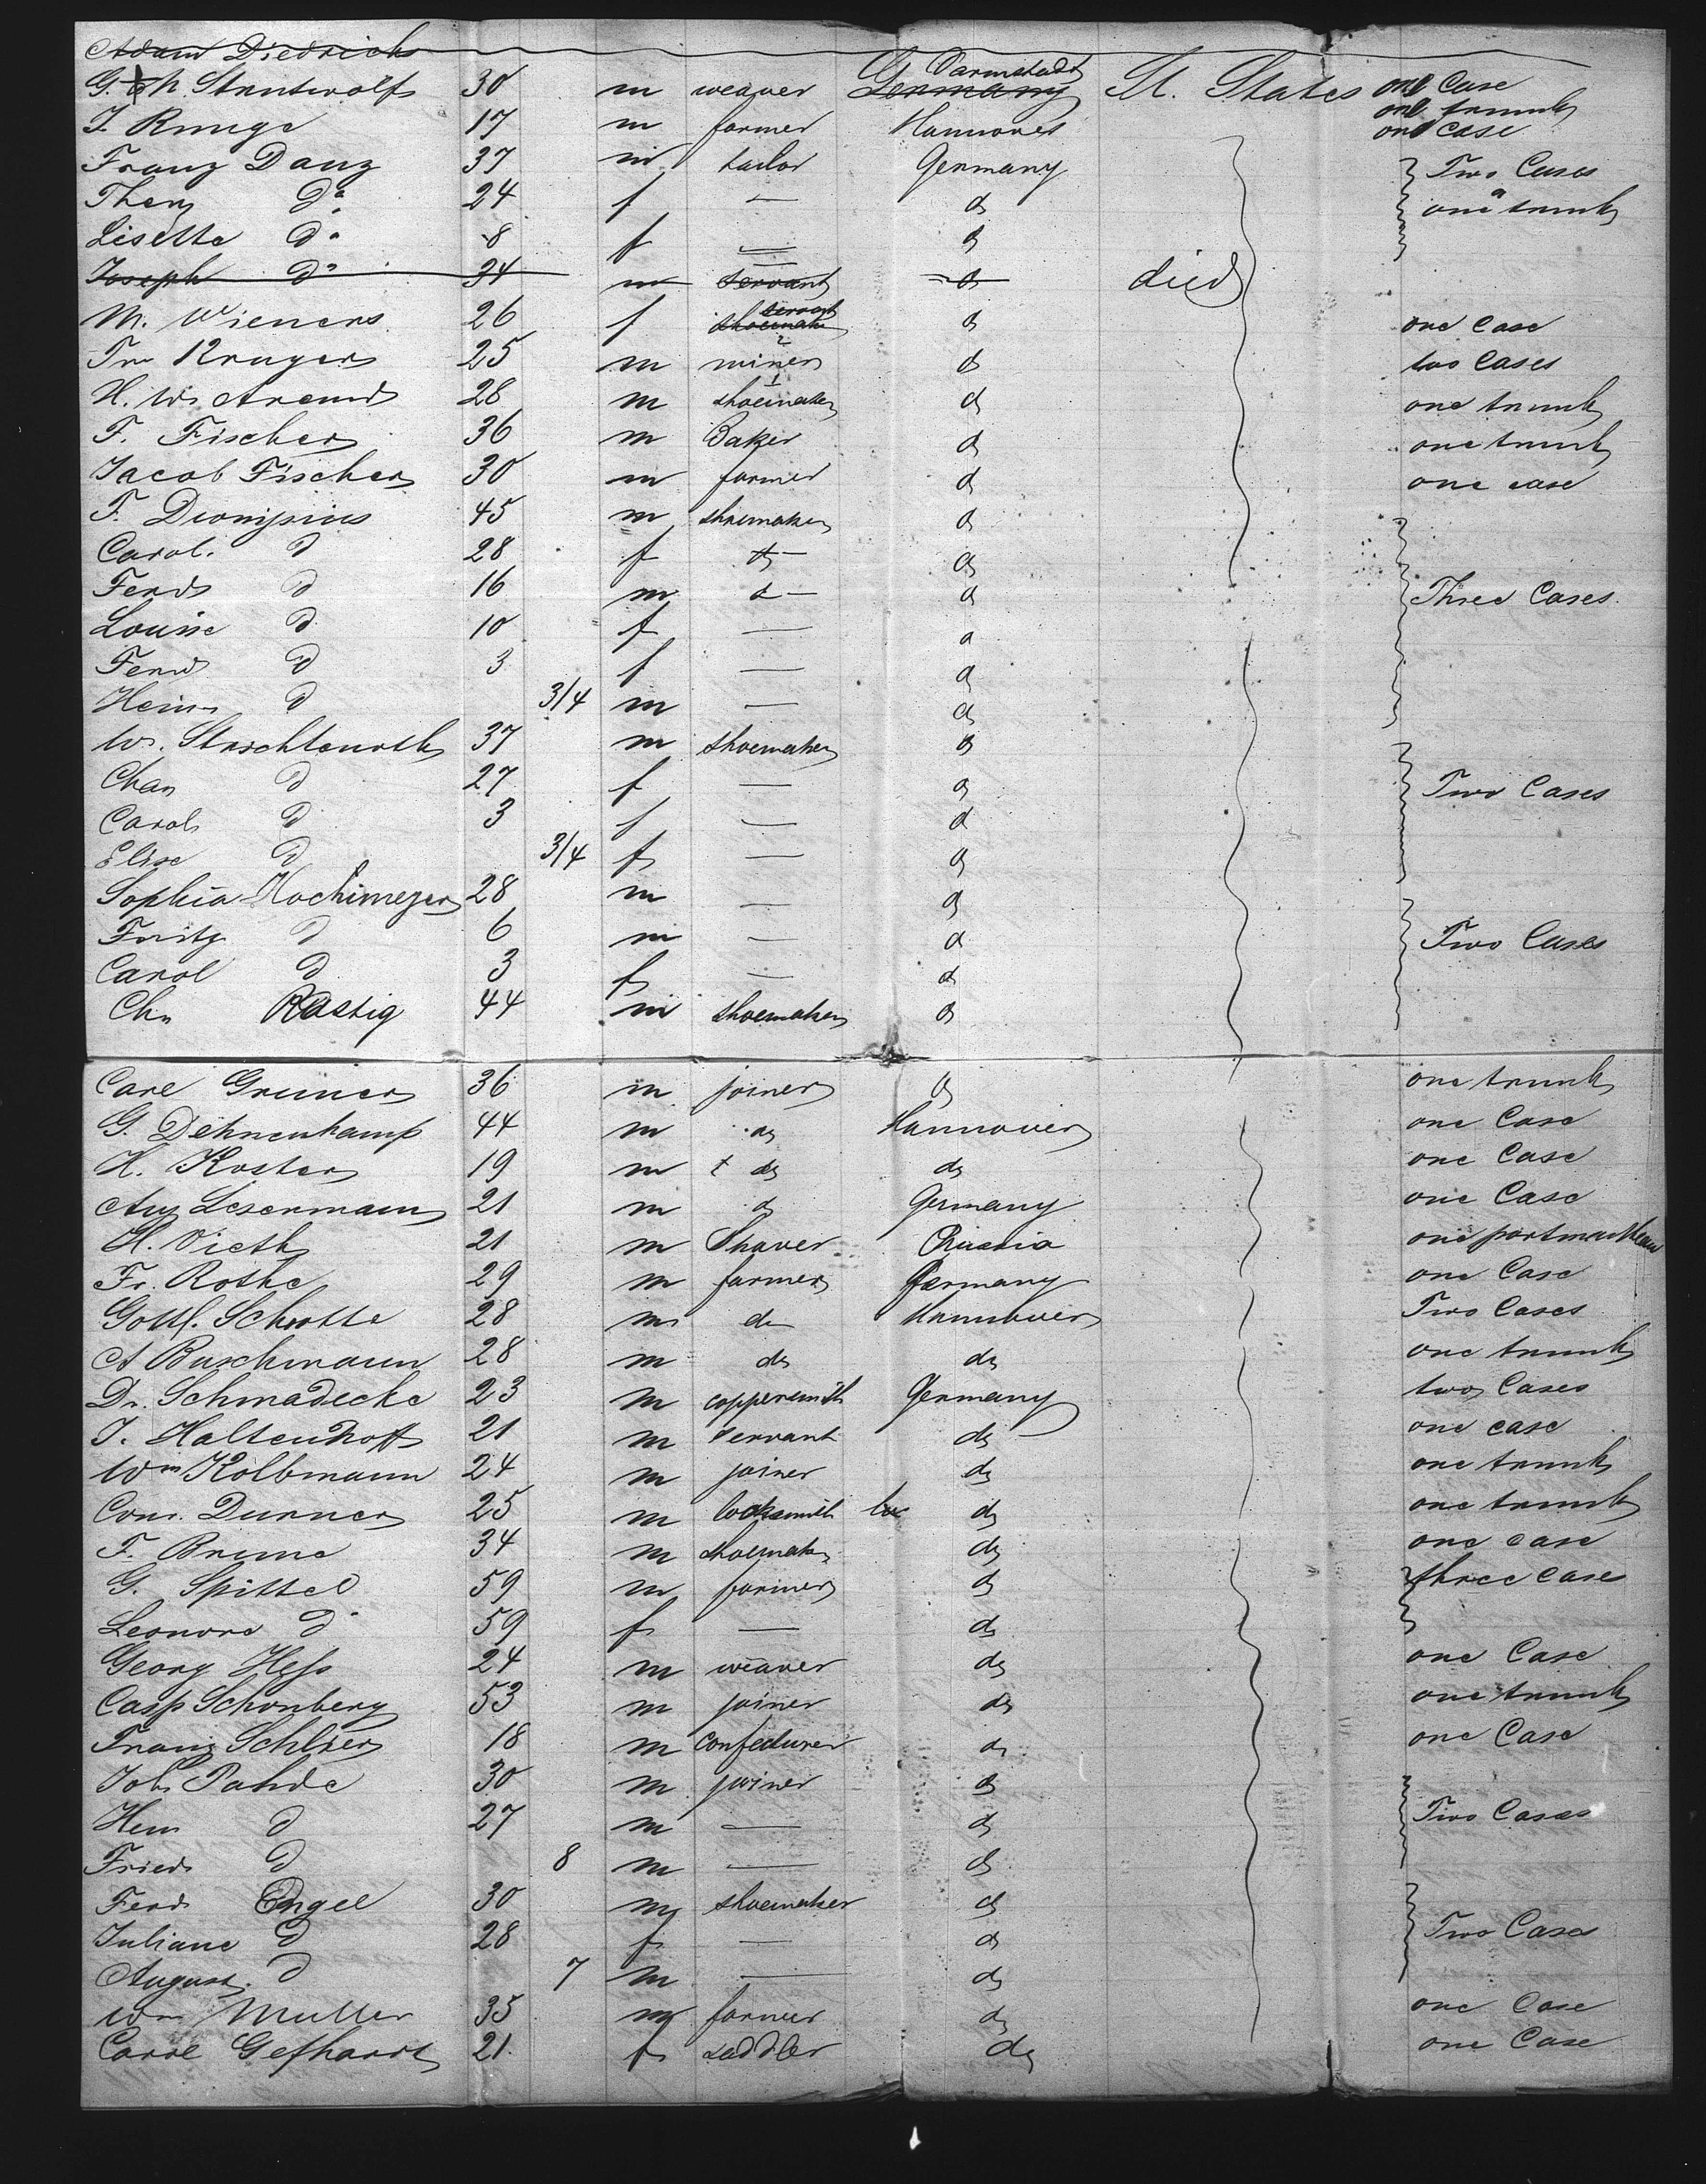 Adam Diedrich
G. H. Strutwolf 30 m weaver Germany Darmstadt U. States one Case
one trunk
J. Runge 17 m farmer Hannover one case
Franz Danz 37 m tailor Germany Two Cases
Therz do 24 f — d one trunk
Lisette do 8 f — d
Joseph do 24 m servant d died
M. Wieners 26 f shoemaker servant d one Case
Fr. Kruger 25 m miner d two Cases
H. W. Arend 28 m shoemaker d one trunk
F. Fischer 36 m Baker d one trunk
Jacob Fischer 30 m farmer d one case
F. Dionysius 45 m shoemaker d
Carol. d 28 f d — d
Ferd d 16 m d — d Three Cases.
Louise d 10 f — d
Ferd d 3 f — d
Hein d 3/4 m — d
W. 37 m shoemaker d
Chan d 27 f — d Two Cases
Carol d 3 f — d
Elise d 3/4 f — d
Sophia Hochimeyer 28 m — d
Fritz d 6 m — d Two Cases
Carol d 3 f — d
Chr Rastig 44 m shoemaker d
Carl Gruner 36 m joiner d one trunk
G. Dehnenkamp 44 m do Hannover one Case
H. Koster 19 m do do one Case
Aug Lesermann 21 m d Germany one Case
H. Vieth 21 m Shaver Prussia one portmantleau
Fr. Rothe 29 m farmer Germany one Case
Gottl. Schotte 28 m do Hannover Two Cases
A Buschmann 28 m do do one trunk
Dr. Schmadecke 23 m coppersmith Germany two Cases
J. Haltenhoff 21 m servant do one case
Wm Kolbmann 24 m joiner do one trunk
Con. Durner 25 m locksmith do one trunk
F. Brune 34 m shoemaker do one case
G. Spittel 59 m farmer d three cases
Leonore d 59 f — do
Georg Hess 24 m weaver do one Case
Casp Schonberg 53 m joiner do one trunk
Franz Schlser 18 m confecturer do one Case
Joh Pahde 30 m joiner d
Hen d 27 m — d Two Cases
Fried d 8 m — d
Ferd Engel 30 m shoemaker d
Juliane d 28 f — d Two Cases
August d 7 m — d
Wm Muller 35 m farmer d one Case
Carol Gefhardt 21 f saddler do one Case